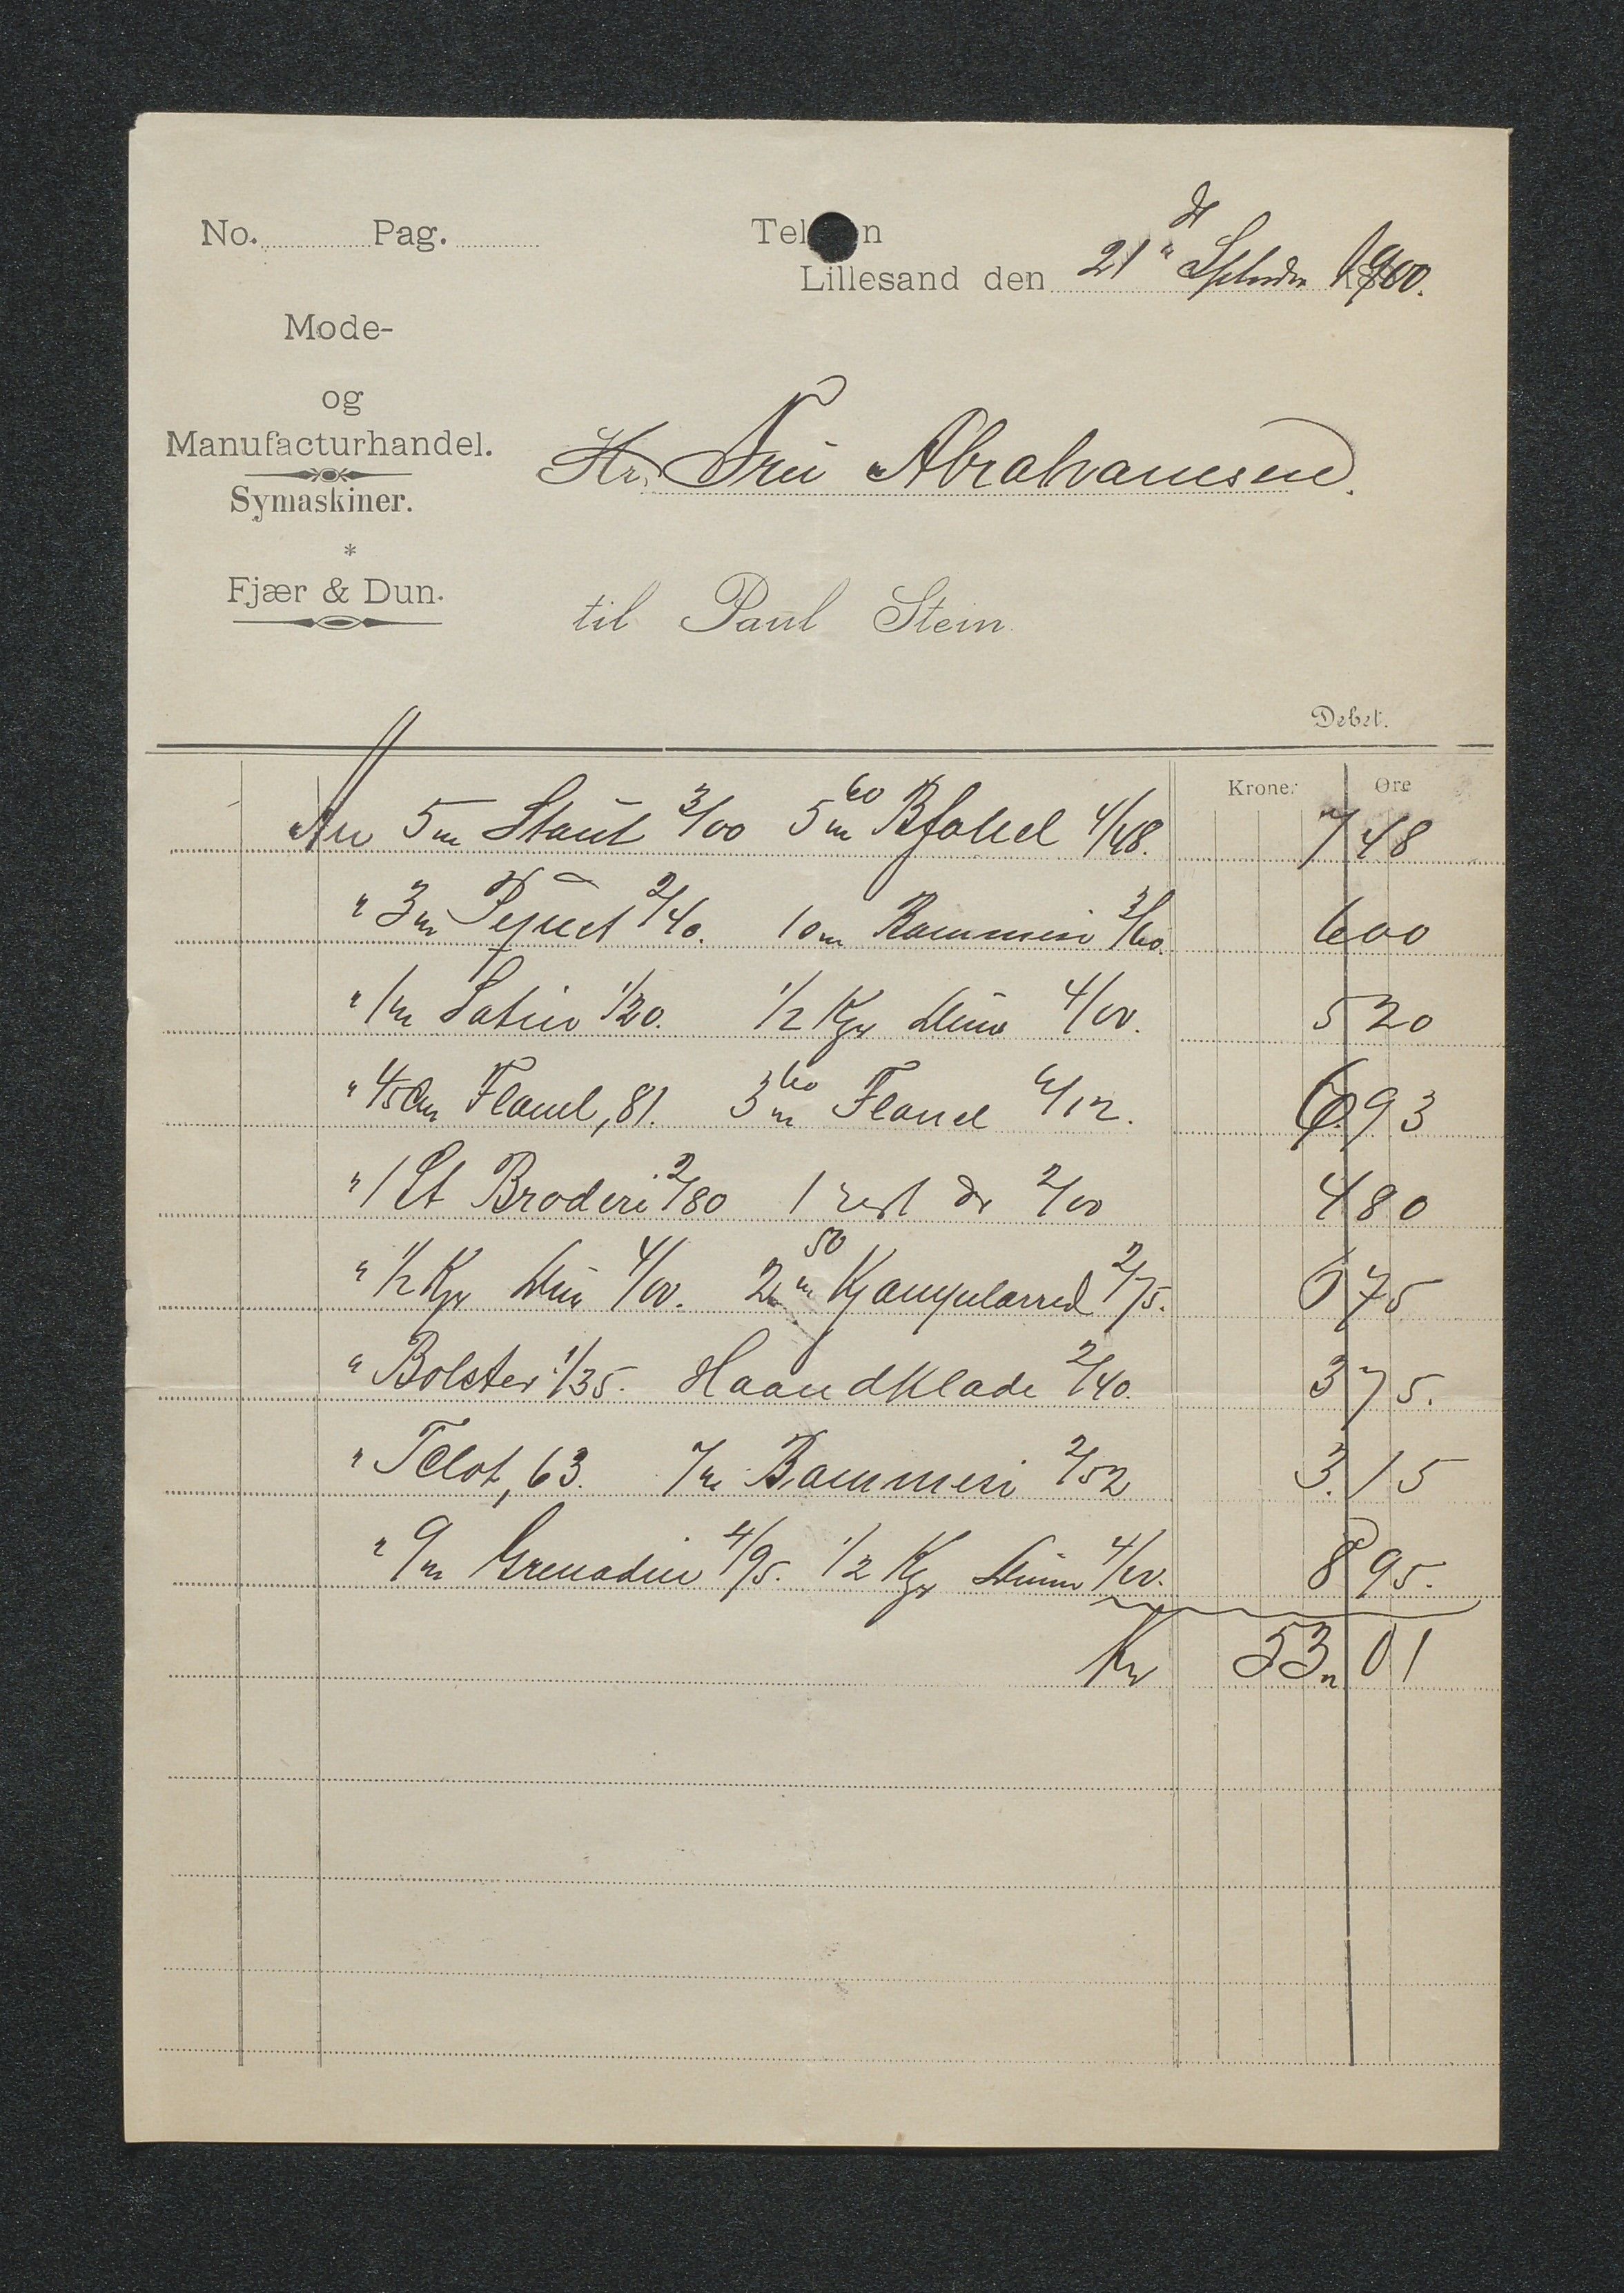 No. Pag. Tel n
Lillesand den 21 Septbr 1900.
Mode-
og
Manufacturhandel.
Symaskiner.
*
Fjær & Dun.
Hr. Fru Abrahamsen.
til Paul Stein
Debet.
Kroner Øre
An 5m Staut 3/00 5 60 m 4/48. 7 48
" 3m Pequet 2/40. 10m 3/60. 6 00
" 1m Satin 1/20. 1/2 Kgr Duun 4/00. 5 20
" 45 Cm Flanel, 81. 3 60 m Flanel 6/12. 6.93
" 1 St Broderi 2/80 1 rest do 2/00 4 80
" 1/2 Kgr Duun 4/00. 2 50 m 2/75. 6 75
" Bolster 1/35. Haandklæde 2/40. 3 75.
" 63. 7m 2/52 3.15
" 9m Grenadin 4/95. 1/2 Kgr Duun 4/00. 8 95.
Kr 53 " 01